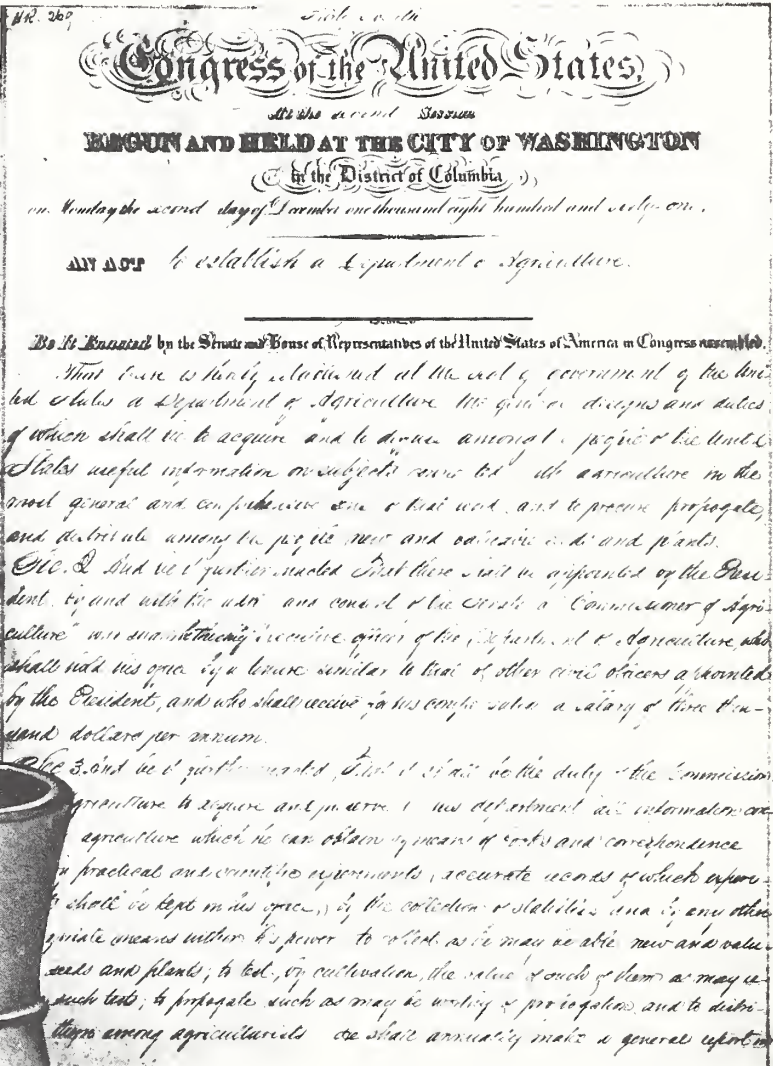 H.R. 269
Thirty-Seventh
Congress of the United States,
At the second Session
BEGUN AND HELD AT THE CITY OF WASHINGTON
in the District of Columbia
on Monday the second day of December one thousand eight hundred and sixty-one.
AN ACT to establish a Department of Agriculture.
Be It Enacted by the Senate and House of Representatives of the United States of America in Congress assembled,
That there is hereby established at the seat of government of the Uni-
ted States a Department of Agriculture the general designs and duties
of which shall be to acquire and to diffuse among the people of the United
States useful information on subjects connected with agriculture in the
most general and comprehensive sense of that word, and to procure, propogate,
and distribute among the people new and valuable seeds and plants.
Sec. 2 And be it further enacted That there shall be appointed by the Presi-
dent, by and with the advice and consent of the Senate a "Commissioner of Agri-
culture" who shall be the chief executive officer of the Department of Agriculture, who
shall hold his office by a tenure similar to that of other civil officers appointed
by the President, and who shall receive for his compensation a salary of three thou-
sand dollars per annum.
Sec 3. And be it further enacted, That it shall be the duty of the Commission
griculture to acquire and preserve in his department all information con-
agriculture which he can obtain by means of books and correspondence
y practical and scientific experiments, accurate records of which experi-
s shall be kept in his office, by the collection of statistics and by any other
priate means within his power to collect as he may be able new and valu-
seeds and plants; to test, by cultivation, the value of such of them as may re-
such tests; to propogate such as may be worthy of propogation and to distri-
them among agriculturists He shall annually make a general report in